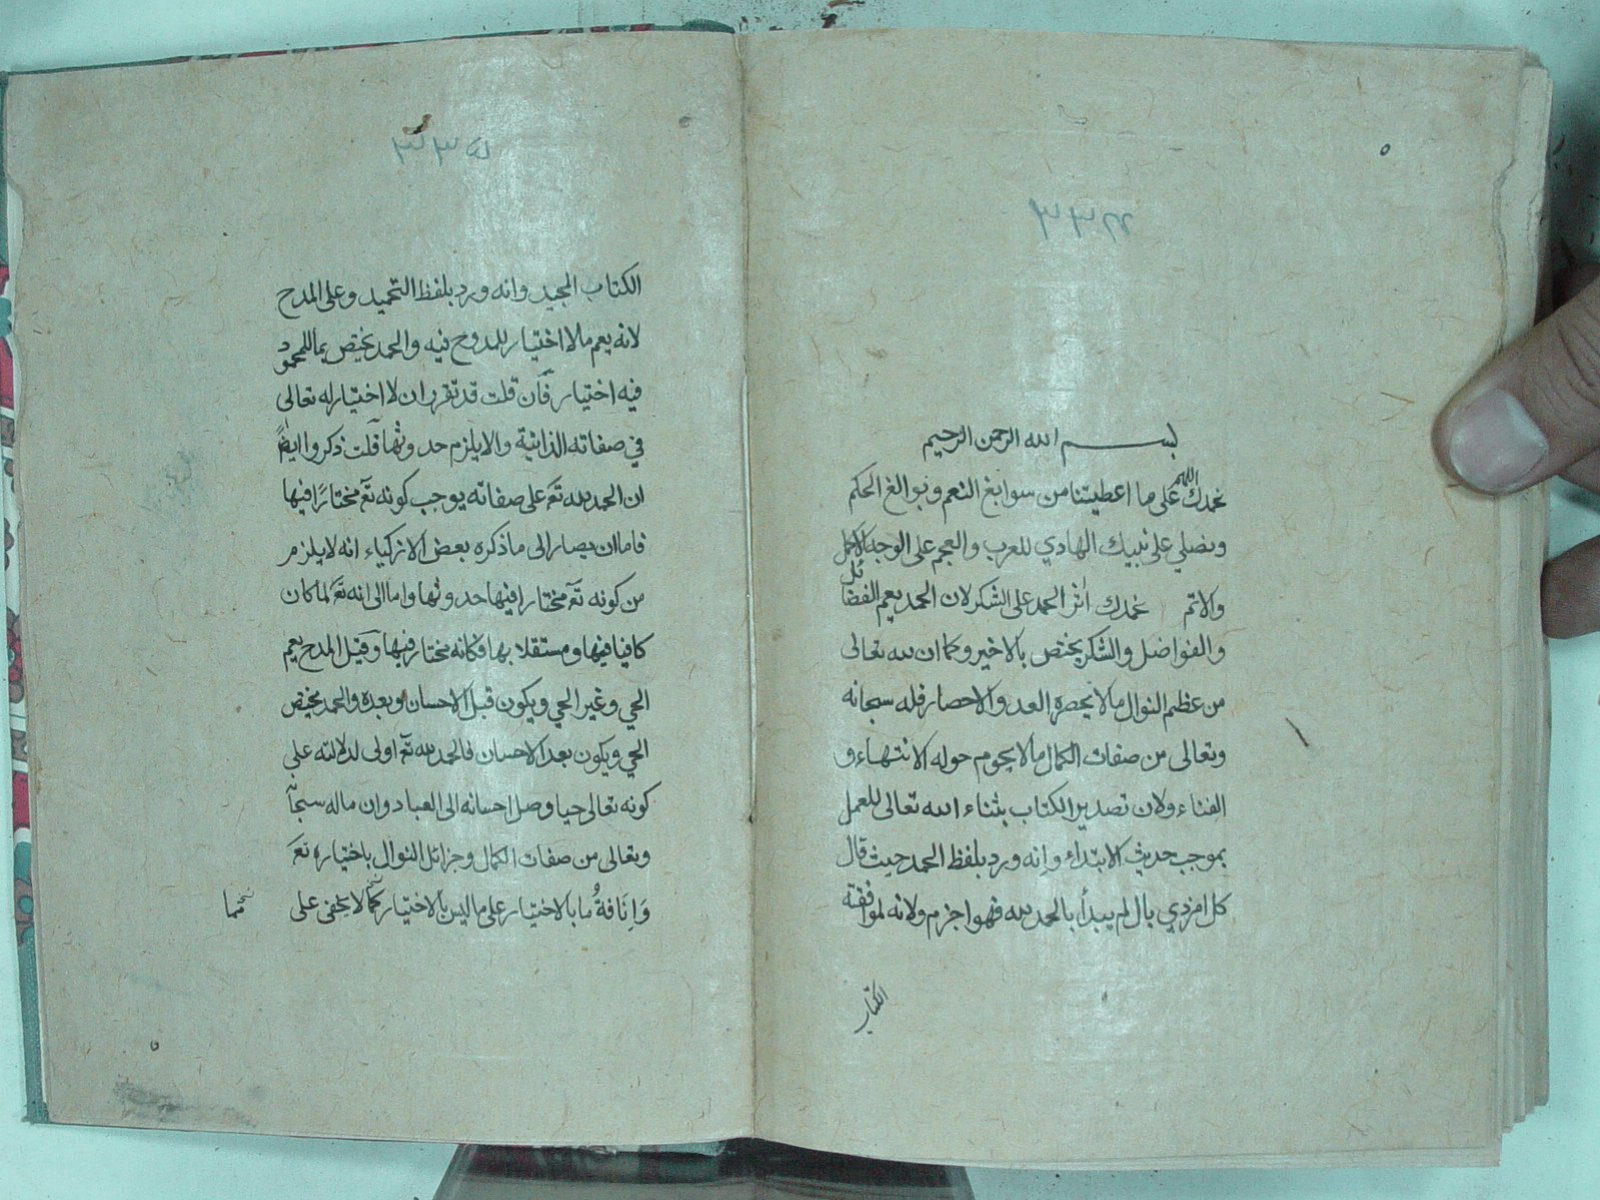 بسم الله الرحمن الرحيم
نحمدك اللهم على ما اعطيتنا من سوابغ النعم ونوالغ الحكم
ونصلي على نبيك الهادي للعرب والعجم على الوجه الاكمل
والاتم نحمدك اثر الحمد على الشكر لان الحمد يعم الفضائل
والفواضل والشكر يختص بالاخير وكما ان لله تعالى
من عظيم النوال ما لا يحصره العد والاحصار فله سبحانه
وتعالى من صفات الكمال ما لا يحوم حوله الانتهاء و
الفناء ولان تصدير الكتاب بثناء الله تعالى للعمل
بموجب حديث الابتداء وانه ورد بلفظ الحمد حيث قال
كل امر ذي بال لم يبدأ بالحمد لله فهو اجزم ولانه لموافقته
الكتاب
الكتاب المجيد وانه ورد بلفظ التحميد وعلى المدح
لانه يعم ما لا اختيار للمدوح فيه والحمد يختص بما للمحمود
فيه اختيار فان قلت قد تقرر ان لا اختيار له تعالى
في صفاته الذاتية والا يلزم حدوثها قلت ذكروا ايضًا
ان الحمد لله تع على صفاته يوجب كونه تع مختارًا فيها
فاما ان يصار الى ما ذكره بعض الازكياء انه لا يلزم
من كونه تع مختارا فيها حدوثها واما الى انه تع لما كان
كافيا فيها ومستقلا بها فكانه مختار فيها وقيل المدح يعم
الحي وغير الحي ويكون قبل الاحسان وبعده والحمد يختص
الحي ويكون بعد الاحسان فالحمد لله تع اولى لدلالته على
كونه تعالى حيا وصل احسانه الى العباد وان ما له سبحانه
وتعالى من صفات الكمال وجزائل النوال باختياره تع
وَانَافةُ ما بالاختيار على ما ليس بالاختيار كما لا يخفى على